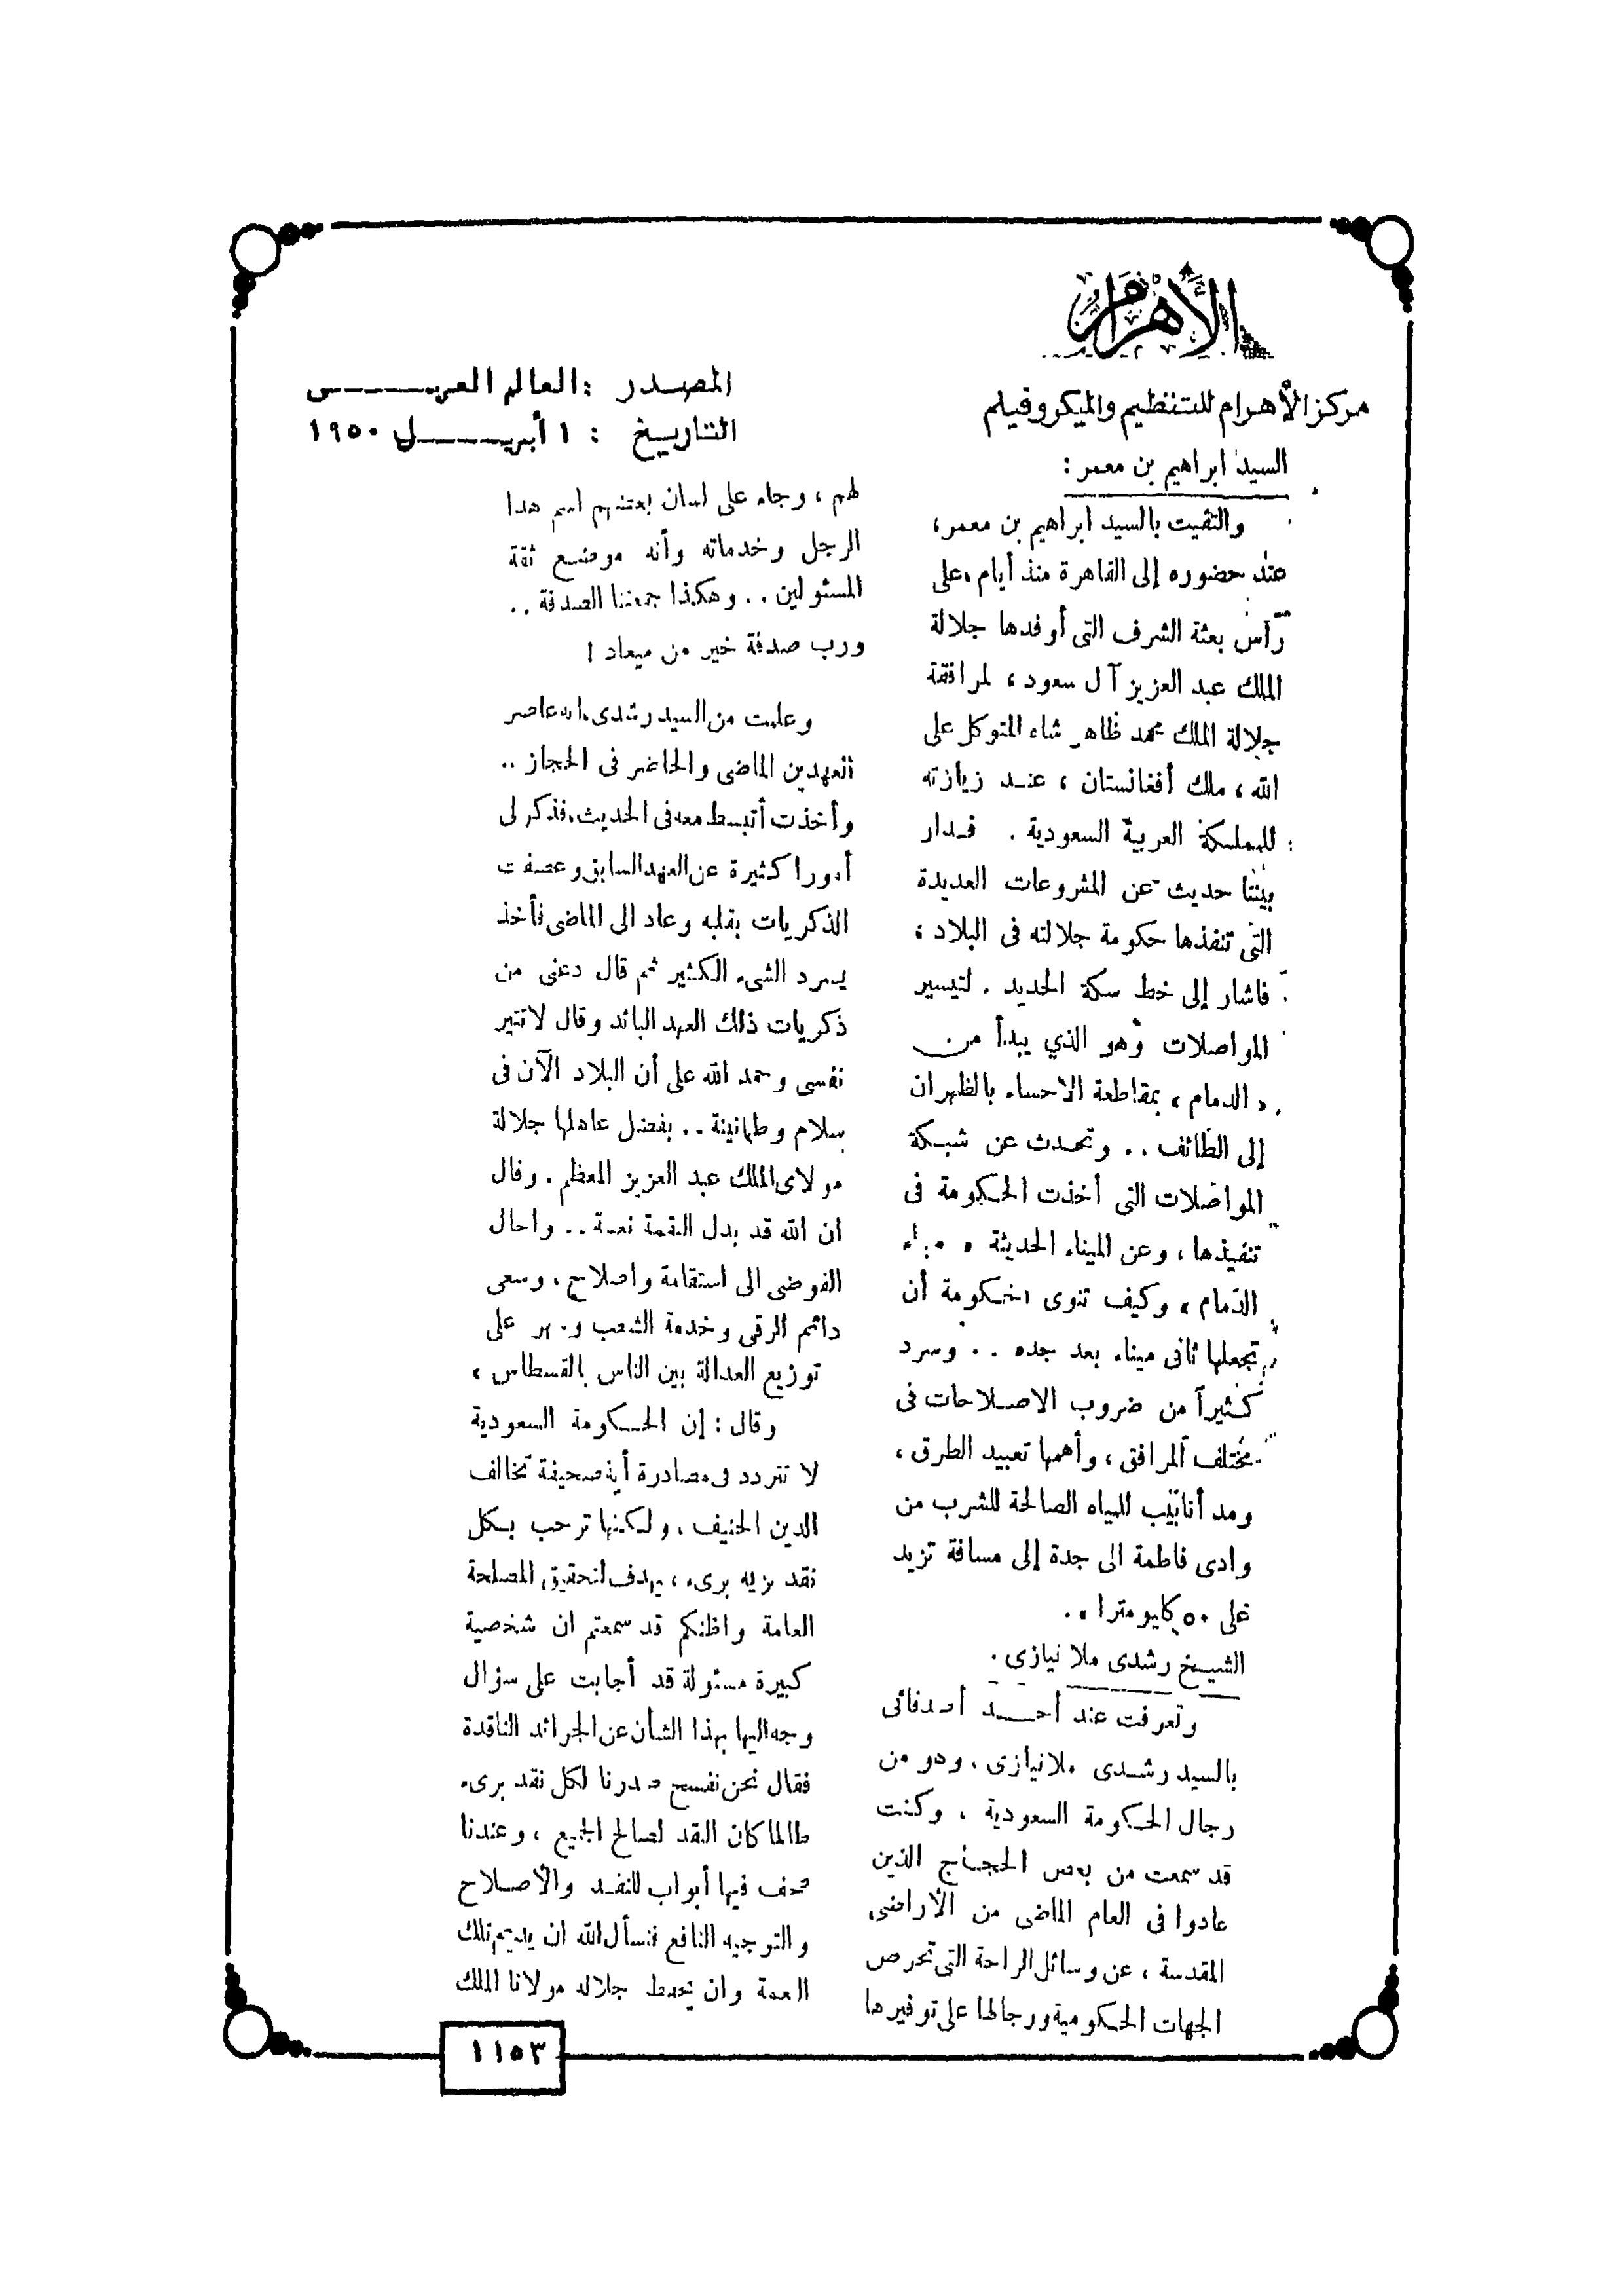 الأهرام
مركز الأهرام للتنظيم والميكروفيلم
المصدر : العالم العربى
التاريخ : ١ أبريل ١٩٥٠
السيد ابراهيم بن معمر :
والتقيت بالسيد ابراهيم بن معمر ،
عند حضوره إلى القاهرة منذ أيام ، على
رأس بعثة الشرف التى أوفدها جلالة
الملك عبد العزيز آل سعود ، لمرافقة
جلالة الملك محمد ظاهر شاه المتوكل على
الله ، ملك أفغانستان ، عند زيارته
للمملكة العربية السعودية . فدار
بيننا حديث عن المشروعات العديدة
التى تنفذها حكومة جلالته فى البلاد ،
فاشار إلى خط سكة الحديد . لتيسير
المواصلات وهو الذي يبدأ من
« الدمام » بمقاطعة الاحساء بالظهران
إلى الطائف .. وتحدث عن شبكة
المواصلات التى أخذت الحكومة فى
تنفيذها ، وعن الميناء الحديثة « ميناء
الدمام » وكيف تنوى الحكومة أن
تجعلها ثانى ميناء بعد جده .. وسرد
كثيراً من ضروب الاصلاحات فى
مختلف المرافق ، وأهمها تعبيد الطرق ،
ومد أنابيب للمياه الصالحة للشرب من
وادى فاطمة الى جدة إلى مسافة تزيد
على ٥٠ كليومترا » .
الشيخ رشدى ملا نيازى .
وتعرفت عند أحد أصدقائى
بالسيد رشدى ملا نيازى ، وهو من
رجال الحكومة السعودية ، وكنت
قد سمعت من بعض الحجاج الذين
عادوا فى العام الماضى من الأراضى
المقدسة ، عن وسائل الراحة التى تحرص
الجهات الحكومية ورجالها على توفيرها
لهم ، وجاء على لسان بعضهم اسم هذا
الرجل وخدماته وأنه موضع ثقة
المسئولين .. وهكذا جمعتنا الصدفة ..
ورب صدفة خير من ميعاد !
وعلمت من السيد رشدى ، انه عاصر
العهدين الماضى والحاضر فى الحجاز ..
وأخذت أتبسط معه فى الحديث ، فذكر لى
أمورا كثيرة عن العهد السابق وعصفت
الذكريات بقلبه وعاد الى الماضى فأخذ
يسرد الشىء الكثير ثم قال دعنى من
ذكريات ذلك العهد البائد وقال لا تثير
نفسى وحمد الله على أن البلاد الآن فى
سلام وطمانينة .. بفضل عاهلها جلالة
مولاى الملك عبد العزيز المعظم . وقال
ان الله قد بدل النقمة نعمة .. واحال
الفوضى الى استقامة واصلاح ، وسعى
دائم الرقى وخدمة الشعب وسهر على
توزيع العدالة بين الناس بالقسطاس ،
وقال : إن الحكومة السعودية
لا تتردد فى مصادرة أية صحيفة تخالف
الدين الحنيف ، ولكنها ترحب بكل
نقد نزيه برىء ، يهدف لتحقيق المصلحة
العامة واظنكم قد سمعتم ان شخصية
كبيرة مسئولة قد أجابت على سؤال
وجه اليها بهذا الشأن عن الجرائد الناقدة
فقال نحن نفسح صدرنا لكل نقد برىء
طالما كان النقد لصالح الجميع ، وعندنا
صحف فيها أبواب للنقد والأصلاح
والتوجيه النافع فنسأل الله ان يديم تلك
النعمة وان يحفظ جلالة مولانا الملك
١١٥٣